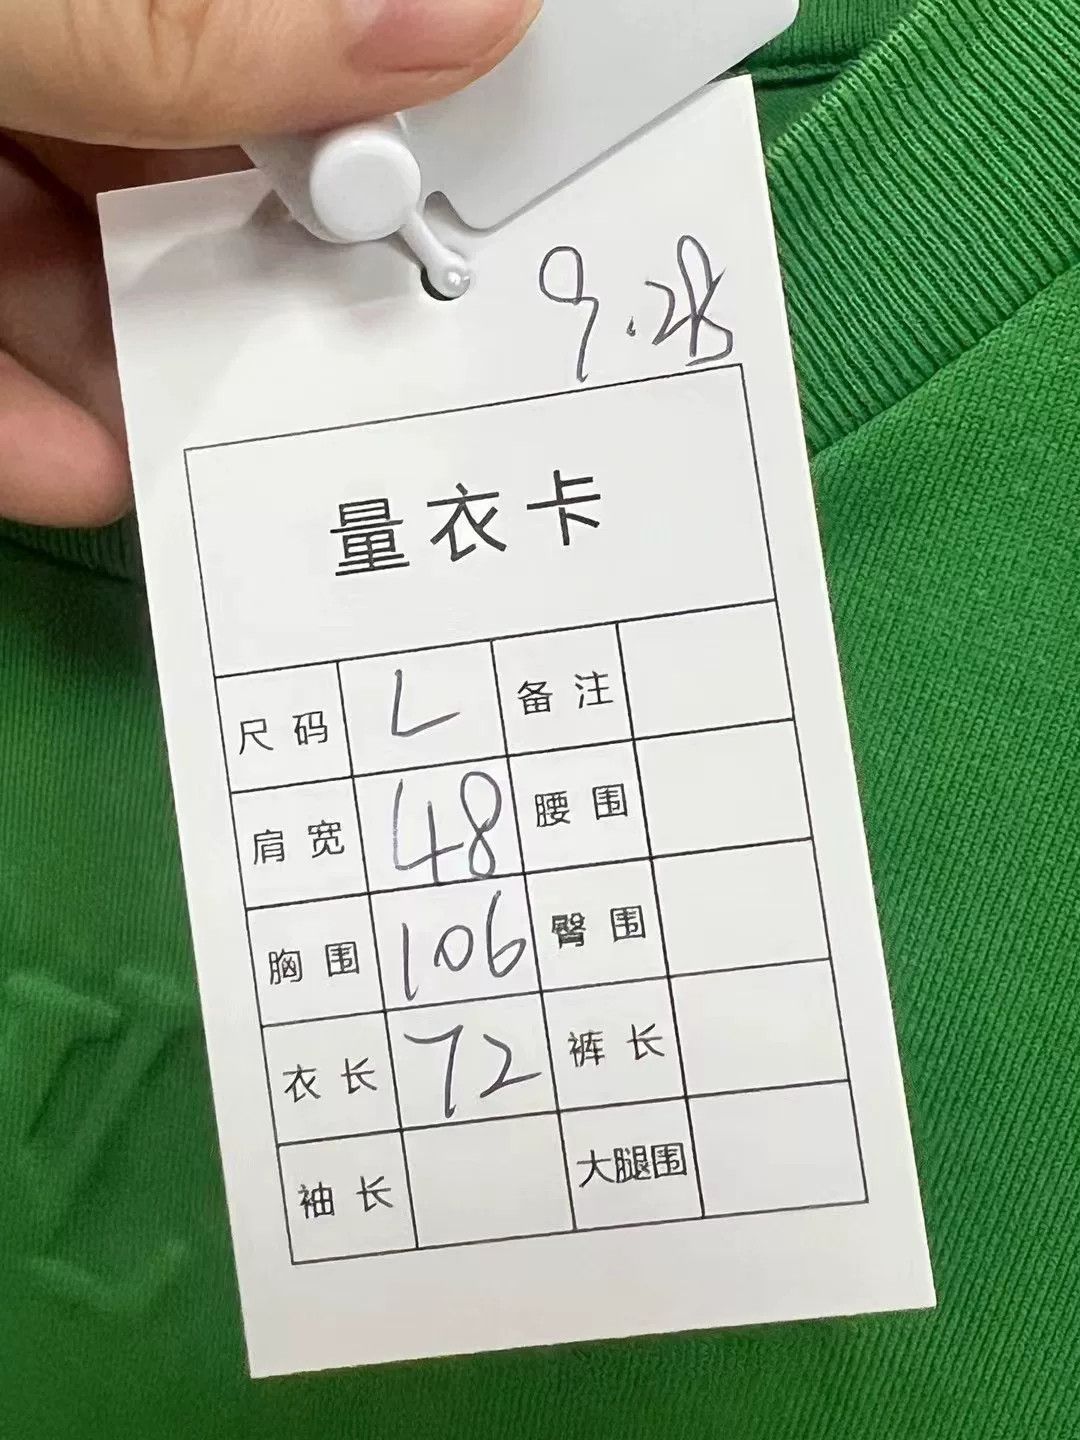 9.28
量衣卡
尺码 L 备注
肩宽 48 腰围
胸围 106 臀围
衣长 72 裤长
袖长 大腿围